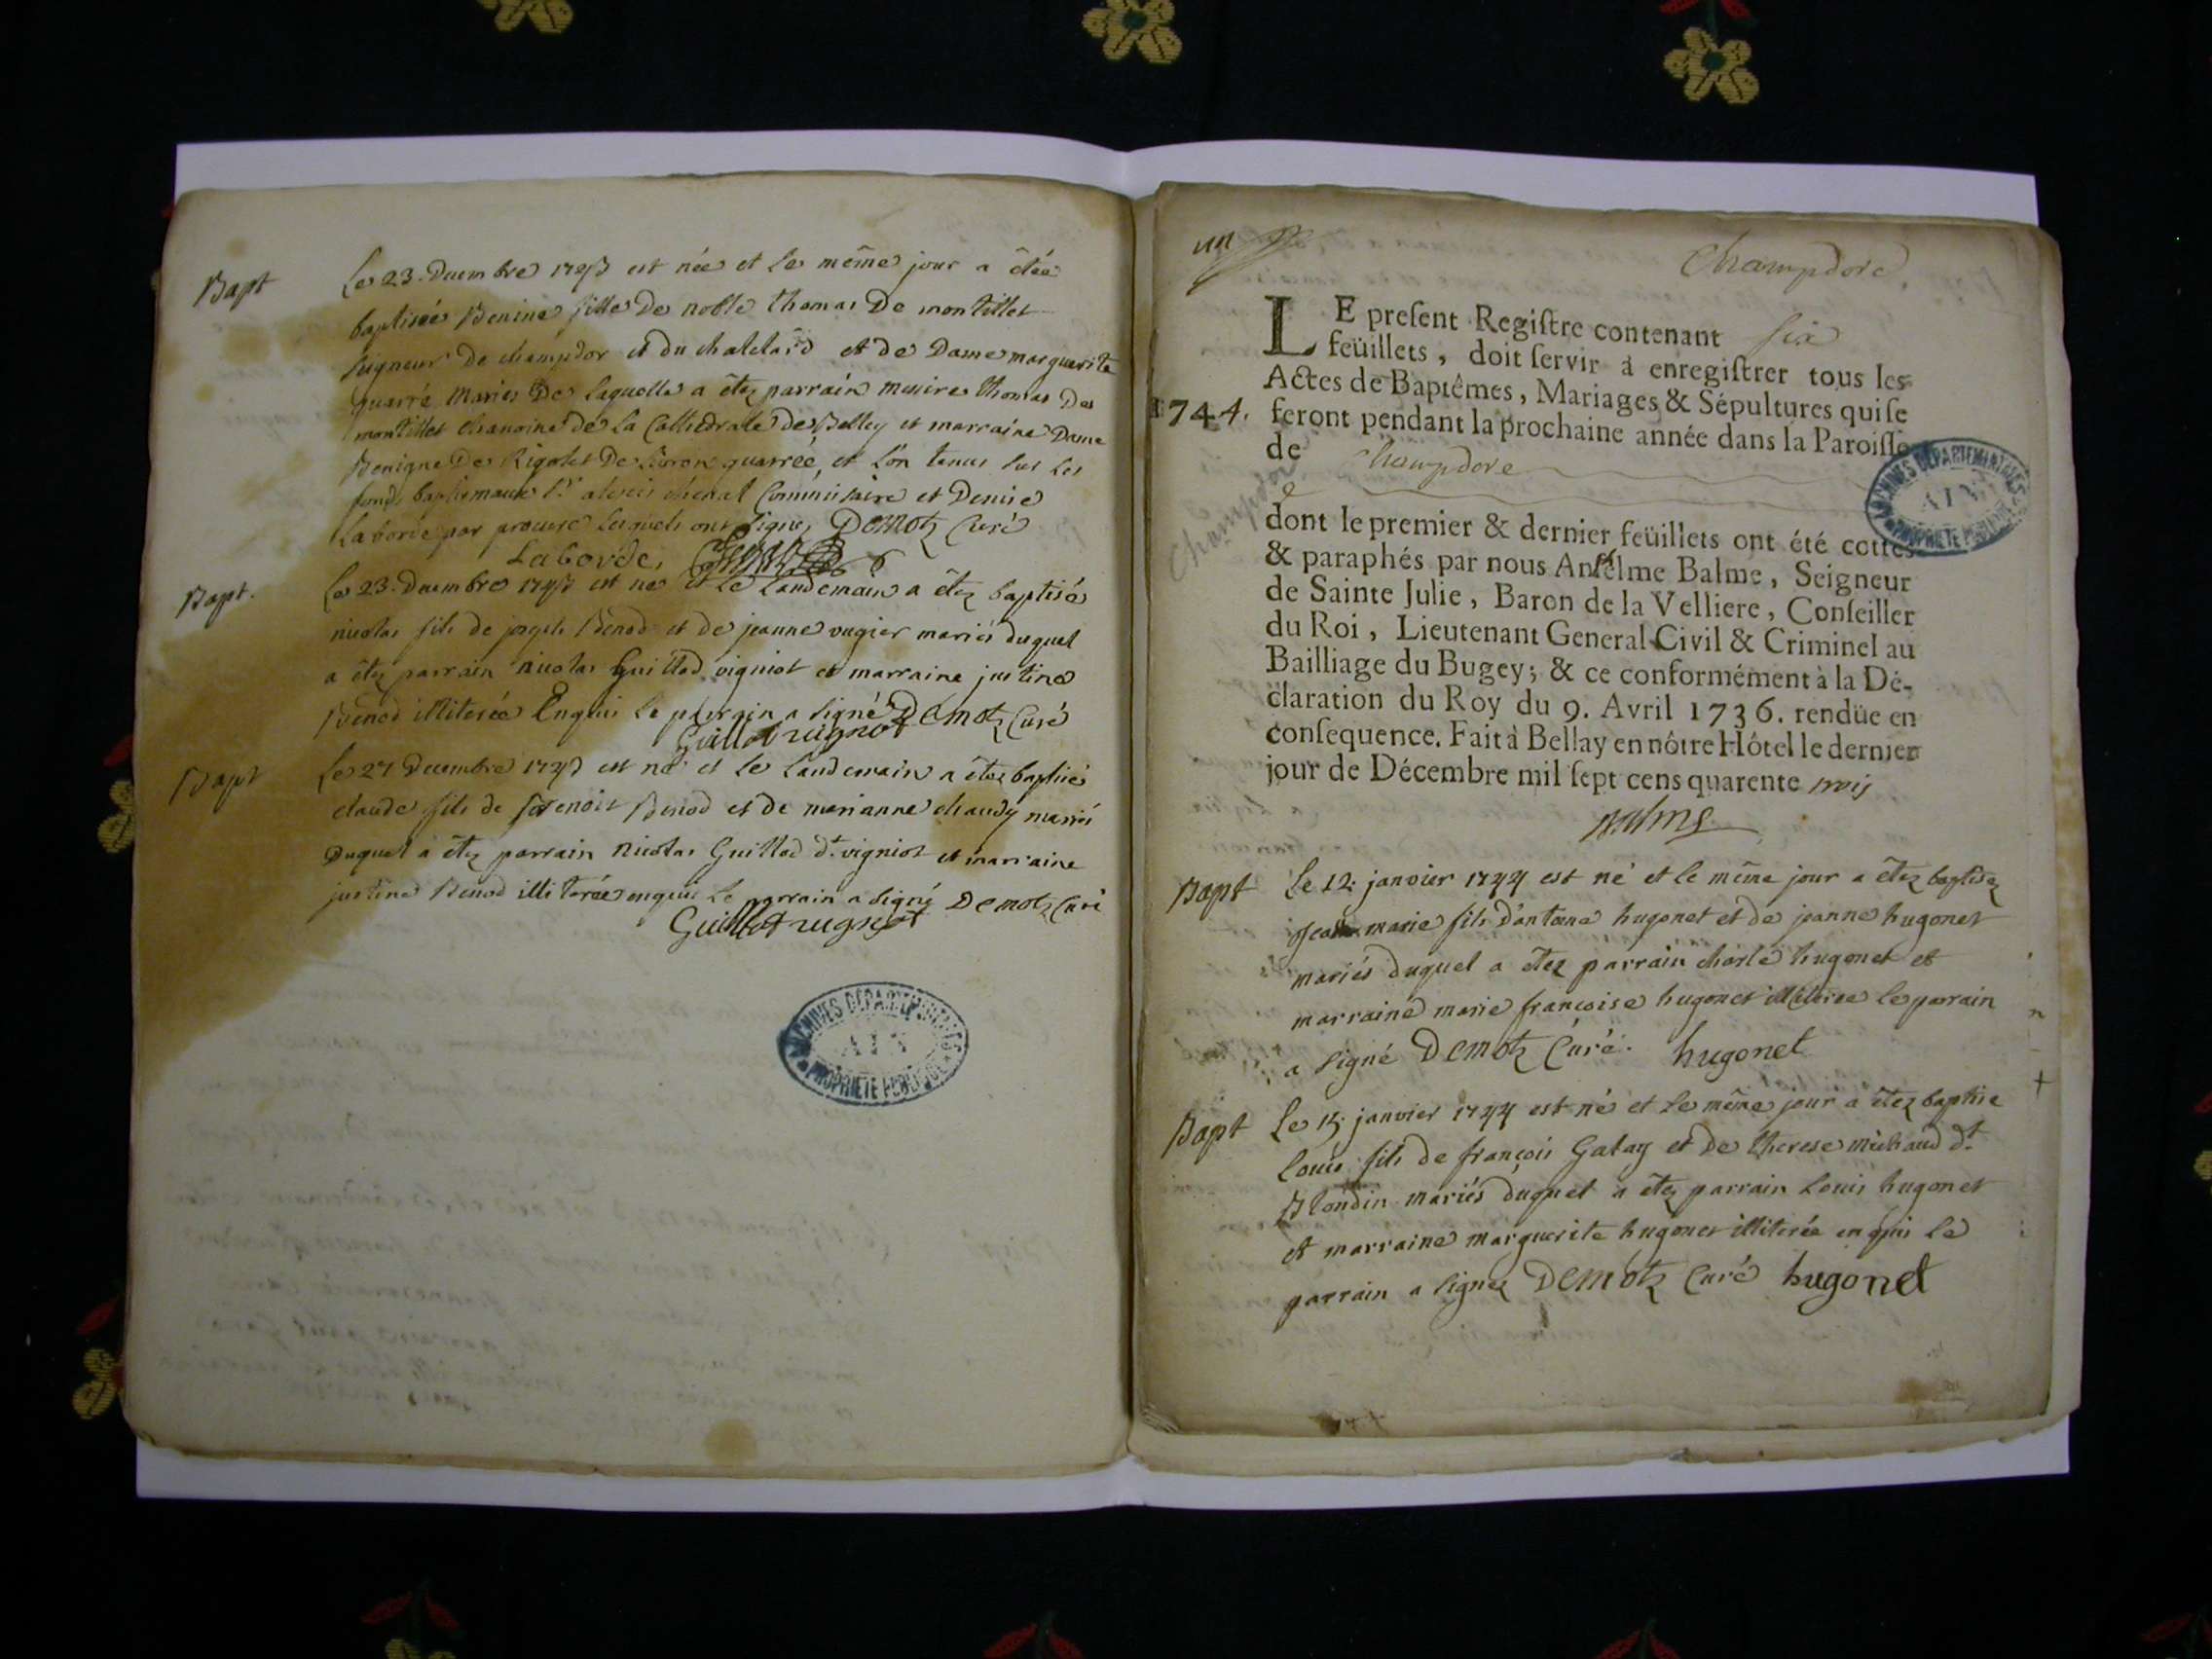 Bapt
Le 23. Decembre 1743 est née et le même jour a êtée
baptisée Benine fille De noble thomas De montillet
seigneur De champdor et du chatelard et de Dame marguerite
quarré Mariés De laquelle a êtez parrain messire thomas De
montillet chanoine de la Cathedrale de Belley et marraine Dame
Benigne De Rigolet De quarrée, et l'on tenus sur les
fonds baptismaux Sr. alexis chenal Commissaire et Denise
Laborde par procure lesquels ont signez Demotz Curé
Laborde,
Bapt.
Le 23. Decembre 1743 est né et le landemain a êtez baptisé
nicolas fils de joseph Benod et de jeanne vugier mariés duquel
a êtez parrain nicolas Guillod vigniot et marraine justine
Benod illiterée Enquis le parrain a signé Demotz Curé
Guillot vignot
Bapt
Le 27 Decembre 1743 est né et le landemain a êtez baptisé
claude fils de Benoit Benod et de marianne chaudy mariés
Duquel a êtez parrain nicolas Guillod dt. vigniot et marraine
justine Benod illiterée enquis le parrain a signé Demotz Curé
Guillot vignot
ARCHIVES DÉPARTEMENTALES
AIN
PROPRIÉTÉ PUBLIQUE
un
Champdore
LE present Registre contenant six
feüillets, doit servir à enregistrer tous les
Actes de Baptêmes, Mariages & Sépultures qui se
1744.
feront pendant la prochaine année dans la Paroisse
de Champdore
Champdor
ARCHIVES DÉPARTEMENTALES
AIN
PROPRIÉTÉ PUBLIQUE
dont le premier & dernier feüillets ont été cottés
& paraphés par nous Anthelme Balme, Seigneur
de Sainte Julie, Baron de la Velliere, Conseiller
du Roi, Lieutenant General Civil & Criminel au
Bailliage du Bugey; & ce conformément à la Dé-
claration du Roy du 9. Avril 1736. rendüe en
consequence. Fait à Bellay en nôtre Hôtel le dernier
jour de Décembre mil sept cens quarente trois
Balme
Bapt
Le 12. janvier 1744 est né et le même jour a êtez baptisez
jean marie fils d'antoine hugonet et de jeanne hugonet
mariés duquel a êtez parrain charle hugonet et
marraine marie françoise hugonet illiterée le parrain
a signé Demotz Curé. hugonet
Bapt
Le 15. janvier 1744 est né et le même jour a êtez baptisé
louis fils de françois Galay et de therese michaud dt.
Blondin mariés duquel a êtez parrain Louis hugonet
et marraine marguerite hugonet illiterée enquis le
parrain a signez Demotz Curé hugonet